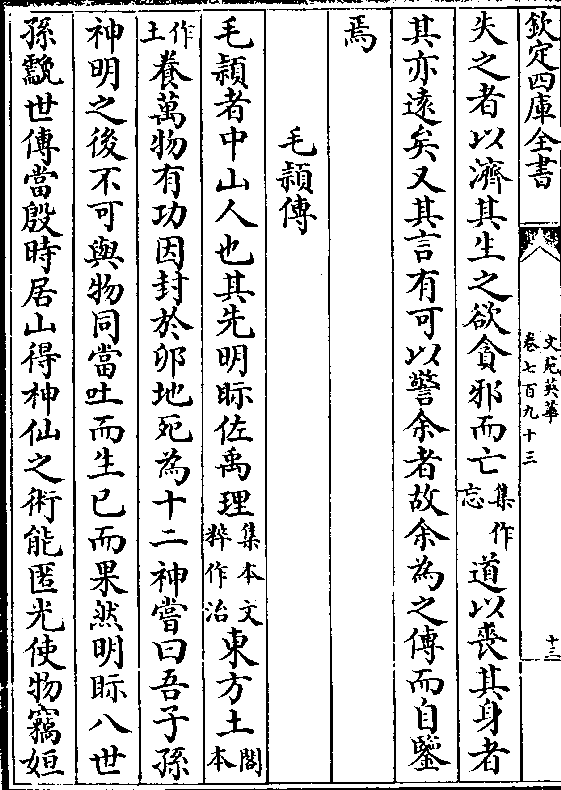 欽定四庫全書
文苑英華
卷七百九十三
十三
失之者以濟其生之欲貪邪而亡集作忘道以喪其身者
其亦遠矣又其言有可以警余者故余為之傳而自鑒
焉
毛頴傳
毛頴者中山人也其先明眎佐禹理集本文粹作治東方土閣本
作土養萬物有功因封於卯地死為十二神嘗曰吾子孫
神明之後不可與物同當吐而生已而果然明眎八世
孫䨲世傳當殷時居山得神仙之術能匿光使物竊姮